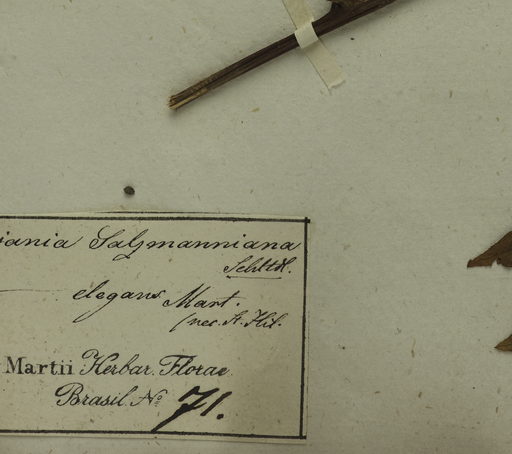 iania Salzmanniana
Schltdl.
elegans Mart.
(nec. A. Hil.
Martii Herbar. Florae
Brasil. No 71.